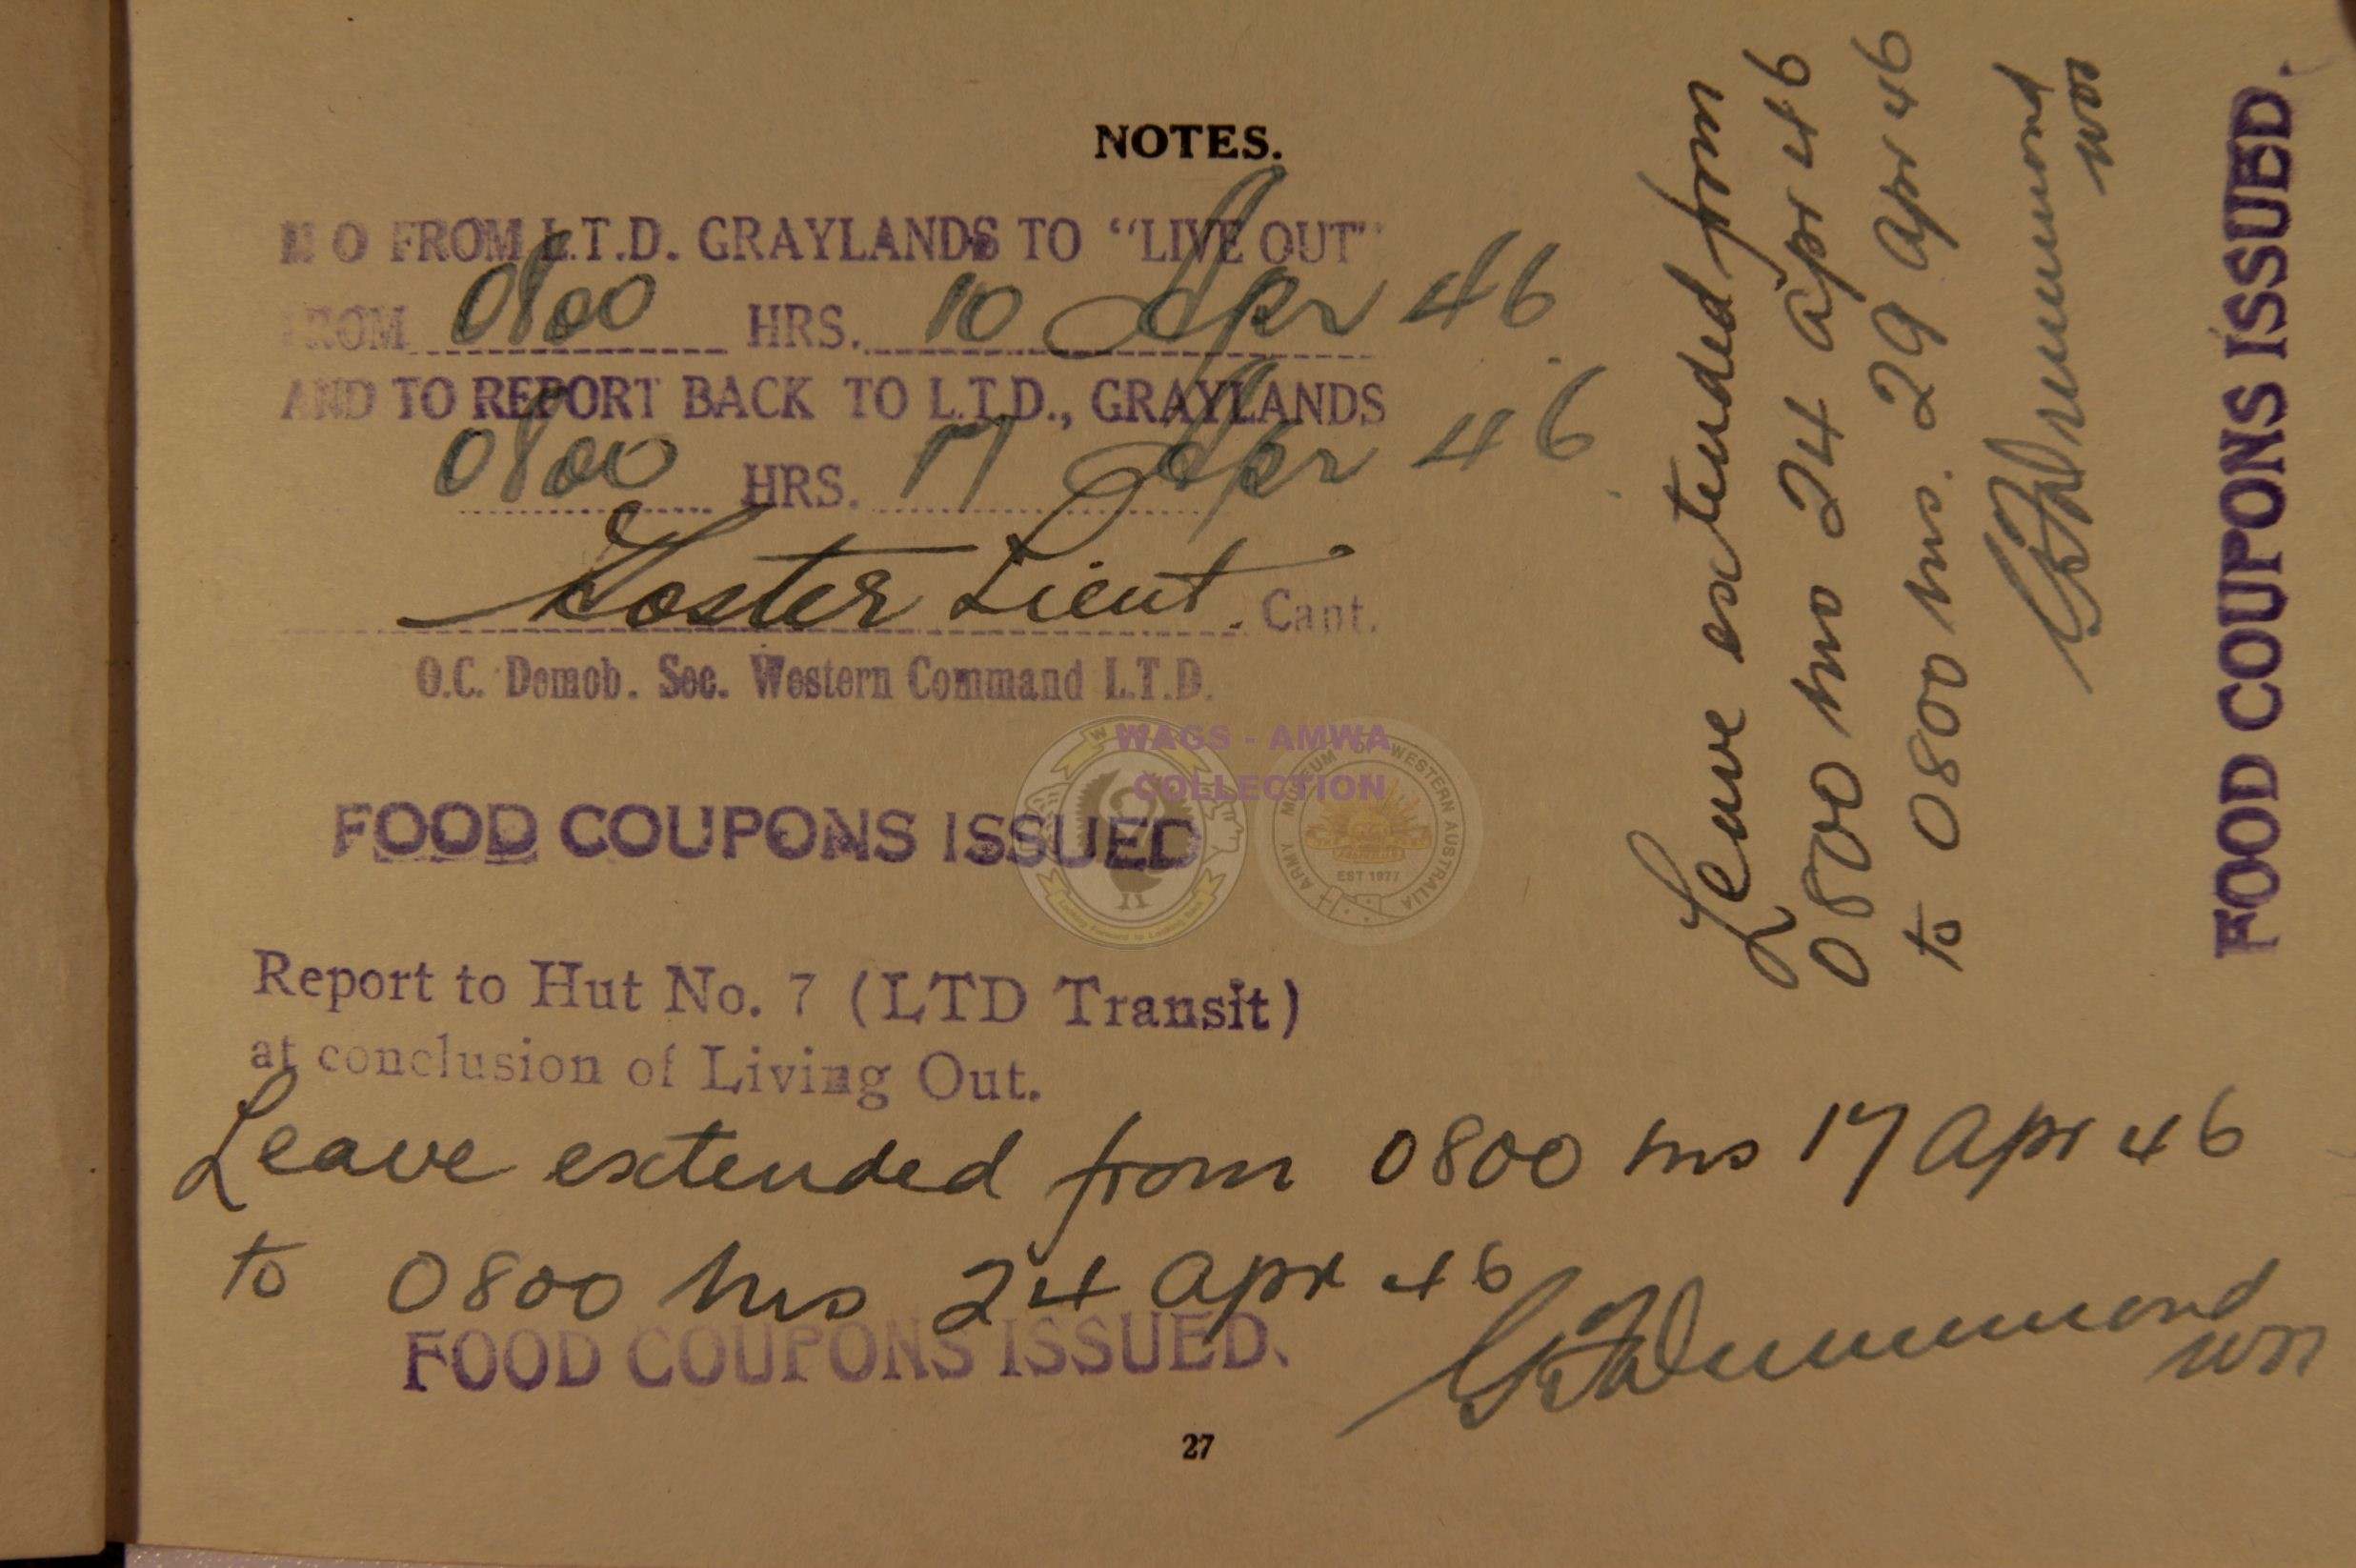 NOTES.
O FROM L.T.D. GRAYLANDS TO "LIVE OUT"
FROM 0800 HRS. 10 Apr 46
AND TO REPORT BACK TO L.T.D., GRAYLANDS
0800 HRS. 17 Apr 46
Foster Lieut. Capt.
O.C. Demob. Sec. Western Command L.T.D.
WAGS - AMWA
COLLECTION
MUSEUM OF WESTERN AUSTRALIA
ARMY
EST 1977
FOOD COUPONS ISSUED
Report to Hut No. 7 (LTD Transit)
at conclusion of Living Out.
Leave extended from 0800 hrs 17 Apr 46
to 0800 hrs 24 Apr 46
FOOD COUPONS ISSUED.
Drummond
WO II
27
Leave extended from
0800 hrs 24 Apr 46
to 0800 hrs. 29 Apr 46
Drummond
WO II
FOOD COUPONS ISSUED.